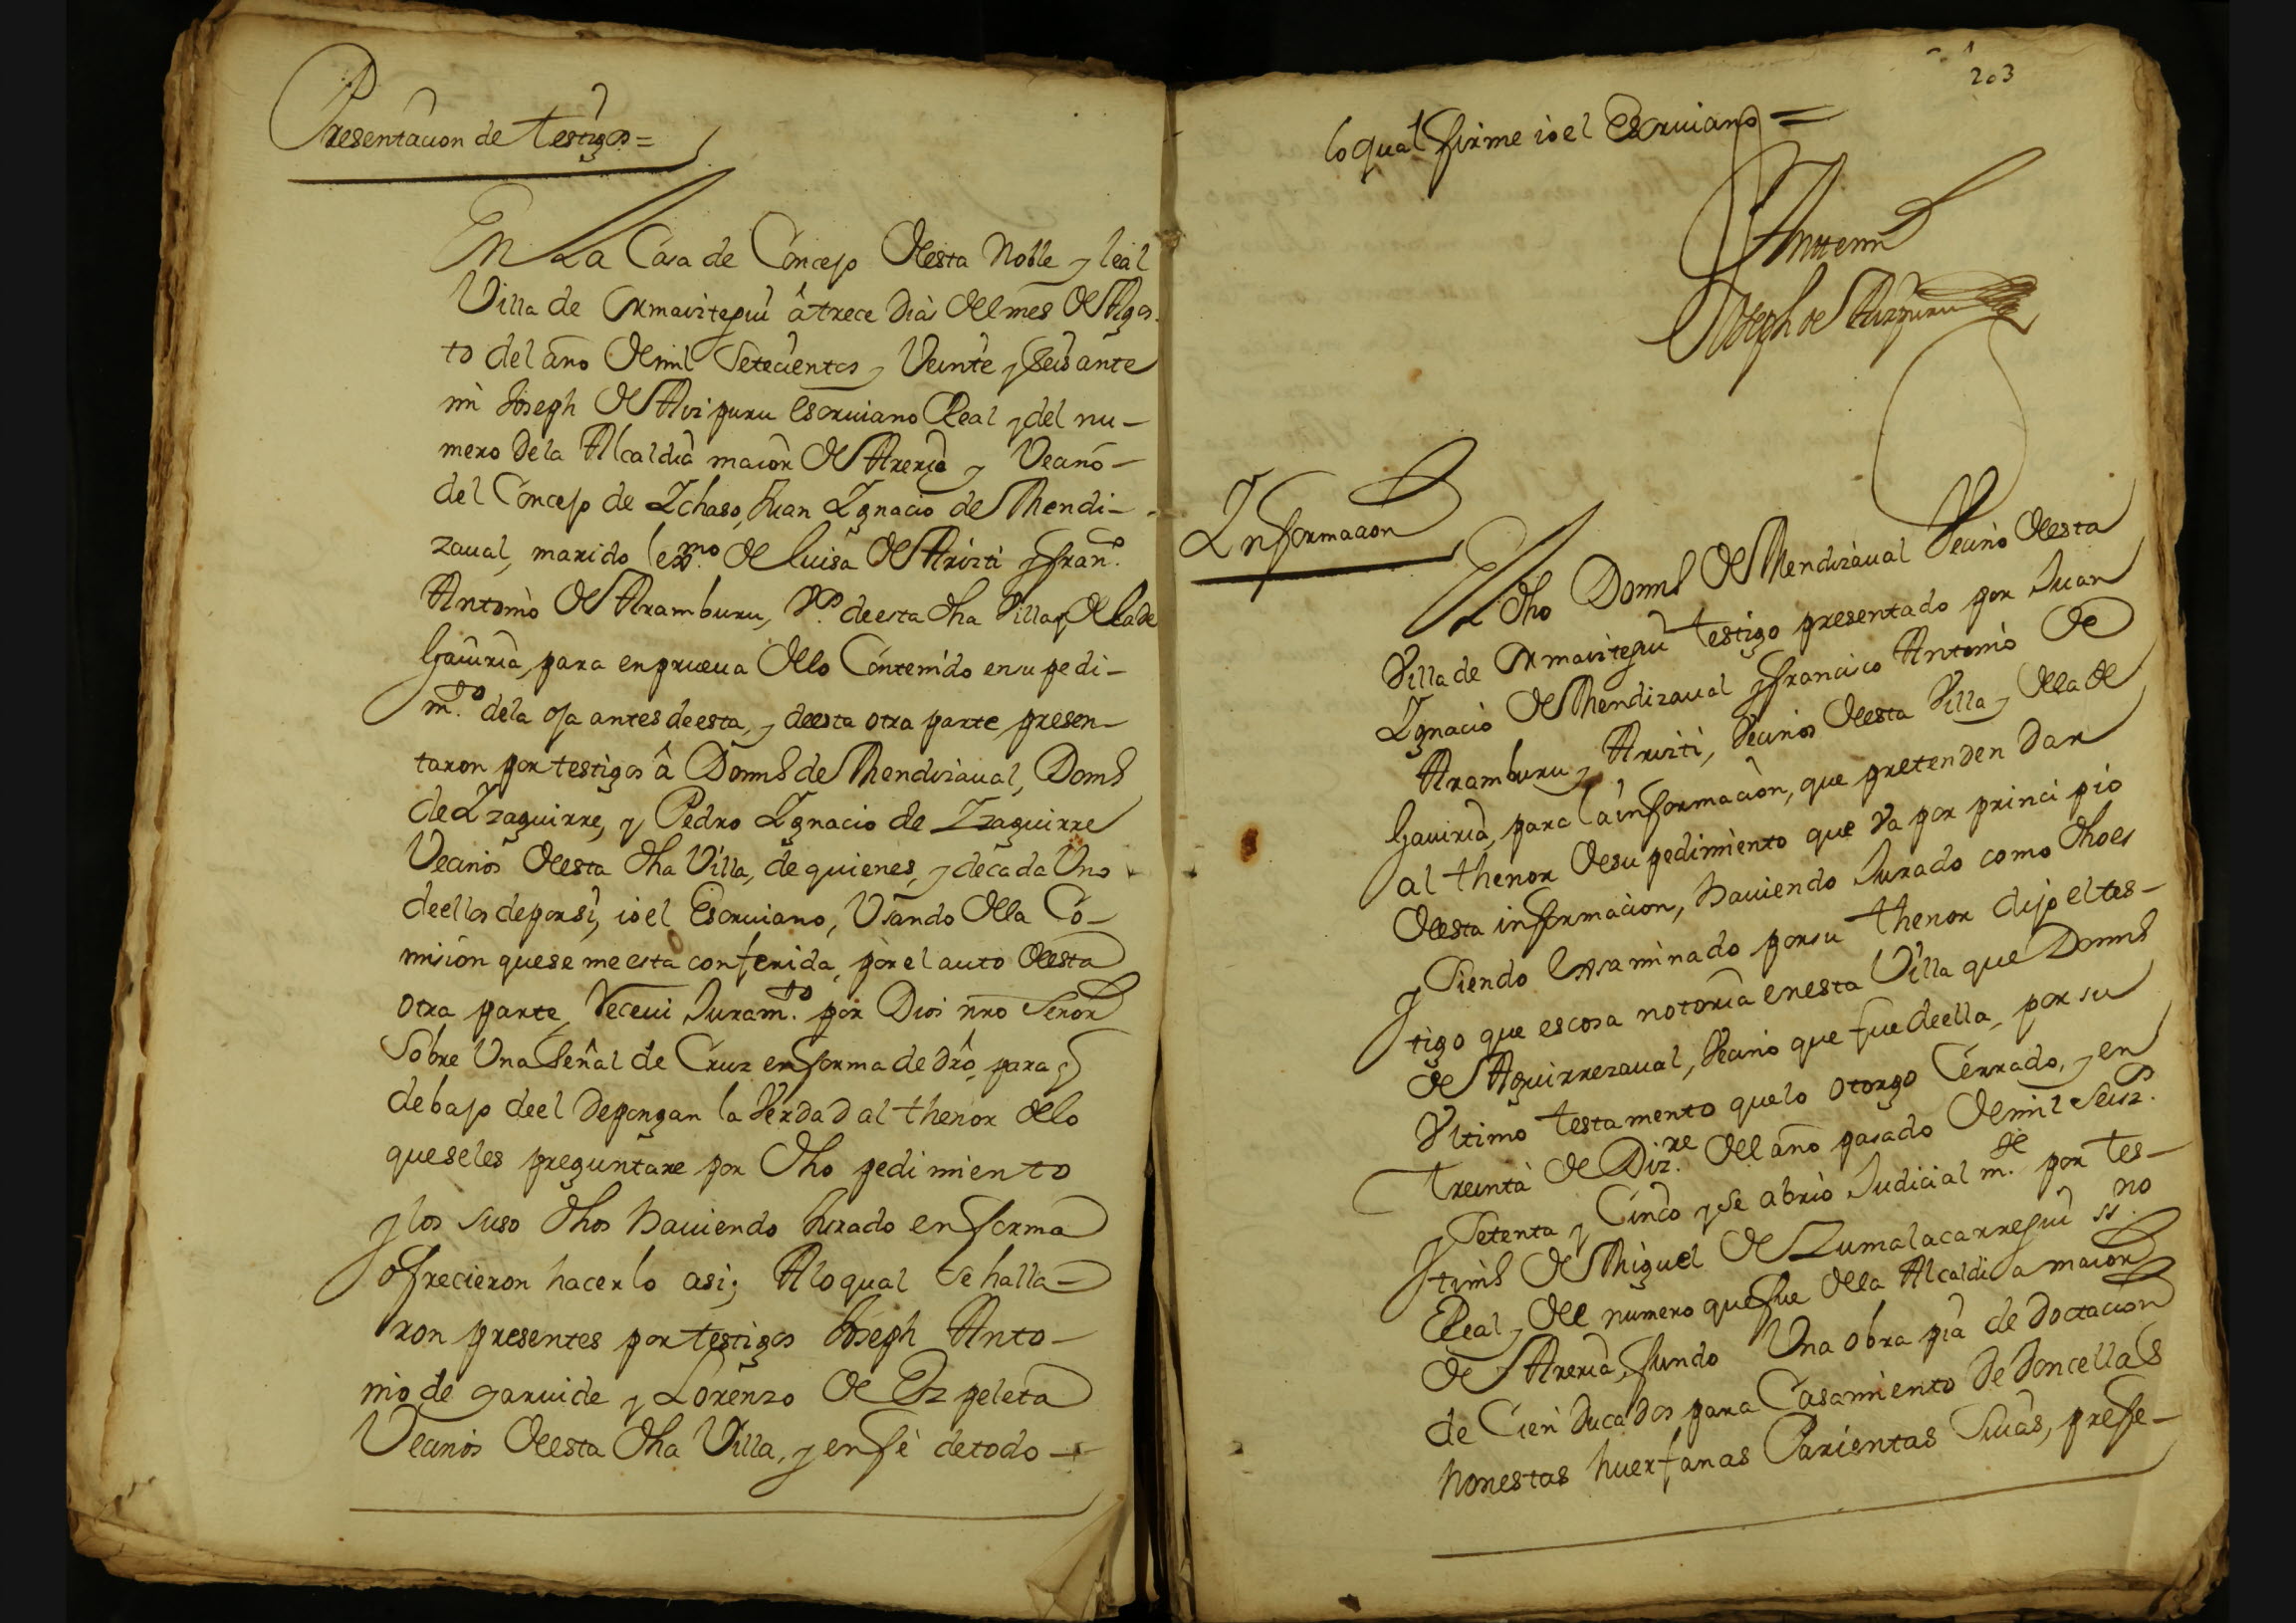 Presentacion de testigos =
En La Casa de Concejo desta Noble y leal
Villa de Ormaiztegui â trece dias del mes de Agos-
to del año de mil Setecientos y Veinte y seis ante
mi Joseph de Aizpuru escriuano Real y del nu-
mero de la Alcaldia maior de Areria y Vecino
del Concejo de Ichaso, Juan Ignacio de Mendi-
zaual, marido lexmo. de luisa de Arizti y fran.co
Antonio de Aramburu, Vos. de esta dha Villa y de la de
Gauiria, para en prueua de lo Contenido en su pedi-
m.to de la oja antes de esta, y de esta otra parte, presen-
taron por testigos â Doms de Mendizaual, Doms
de Izaguirre, y Pedro Ignacio de Izaguirre
Vecinos desta dha Villa, de quienes, y de cada Vno
de ellos de por si, io el Escriuano, Vsando de la Co-
mision que se me esta conferida, por el auto desta
otra parte, Receui Juram.to por Dios nro Señor
Sobre Vna Señal de Cruz en forma de dro, para q
debajo de el depongan la Verdad al thenor de lo
que se les preguntare por dho pedimiento
y los suso dhos hauiendo Jurado en forma
ofrecieron hacerlo asi; A lo qual se halla-
ron presentes por testigos Joseph Anto-
nio de garuide y Lorenzo de Ezpeleta
Vecinos desta dha Villa, y en fè de todo
203
lo qual firme io el Escriuano =
Antemi
Joseph de Aizpuru
Informacion
El dho Doms de Mendizaual Vecino desta
Villa de Ormaiztegui testigo presentado por Juan
Ignacio de Mendizaual y francisco Antonio de
Aramburu y Arizti, Vecinos desta Villa y de la de
Gauiria, para la informacion, que pretenden dar
al thenor de su pedimiento que va por principio
desta informacion, hauiendo Jurado como dho es
y Siendo Examinado por su thenor dijo el tes-
tigo que es cosa notoria en esta Villa que Doms
de Aguirrezaual, Vecino que fue de ella, por su
Vltimo testamento que lo otorgo Cerrado, y en
treinta de Diz.re del año pasado de mil Seisz.s
y Setenta y Cinco y se abrio Judicialm.te por tes-
tim̃o de Miguel de Zumalacarregui ss.no
Real y del numero que fue de la Alcaldia maior
de Areria, fundo Vna obra pia de doctacion
de Cien ducados para Casamiento de doncellas
honestas huerfanas Parientas Suias, prefe-